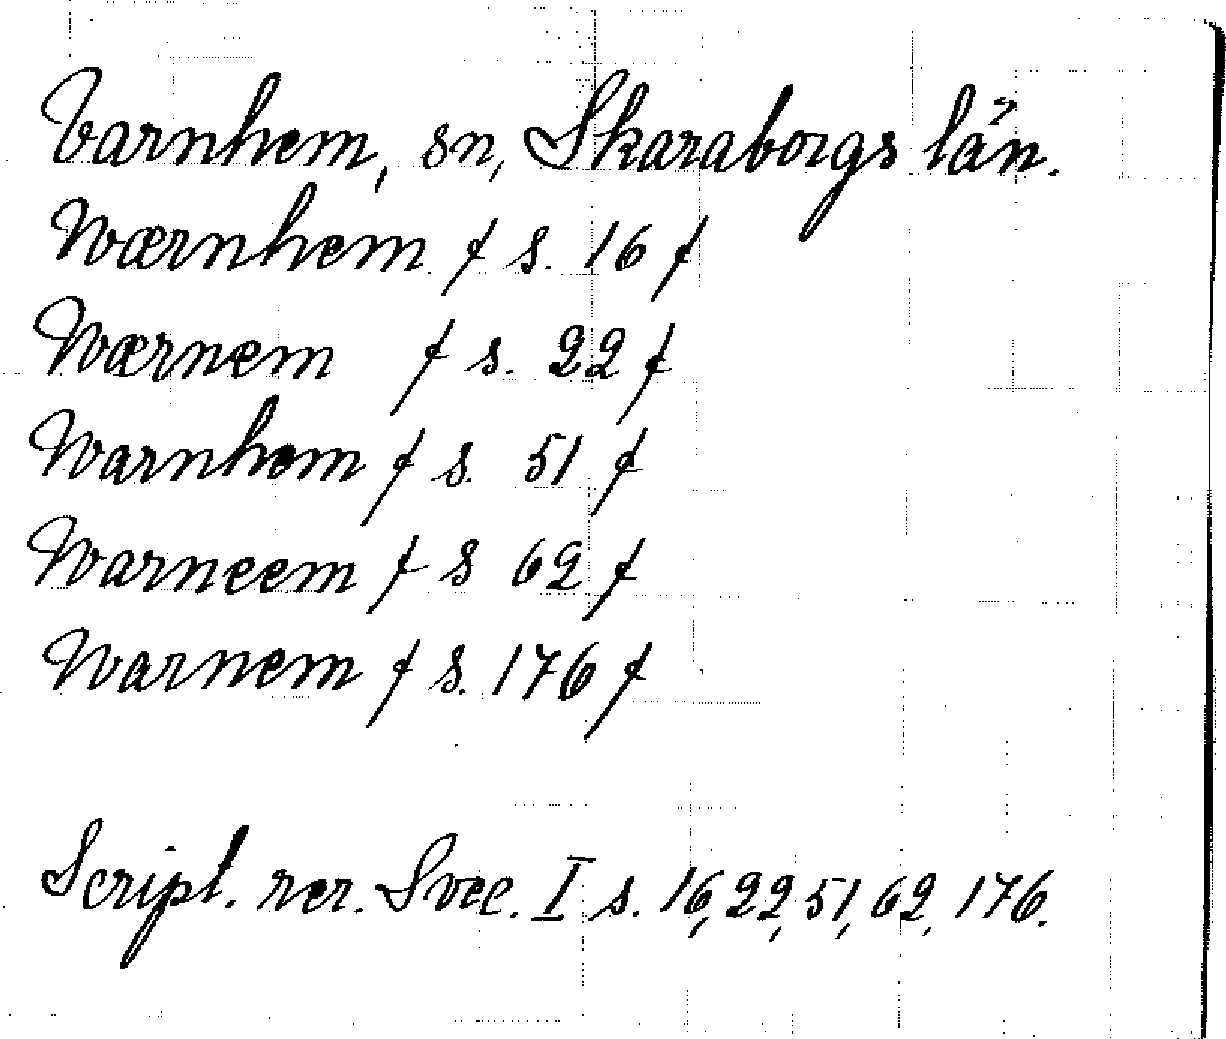 Varnhem, sn, Skaraborgs län.
Wærnhem f s. 16 f
Wærnem f s. 22 f
Warnhem f s. 51 f
Warneem f s 62 f
Warnem f s. 176 f
Script. rer. Svec. I s. 16, 22, 51, 62, 176.